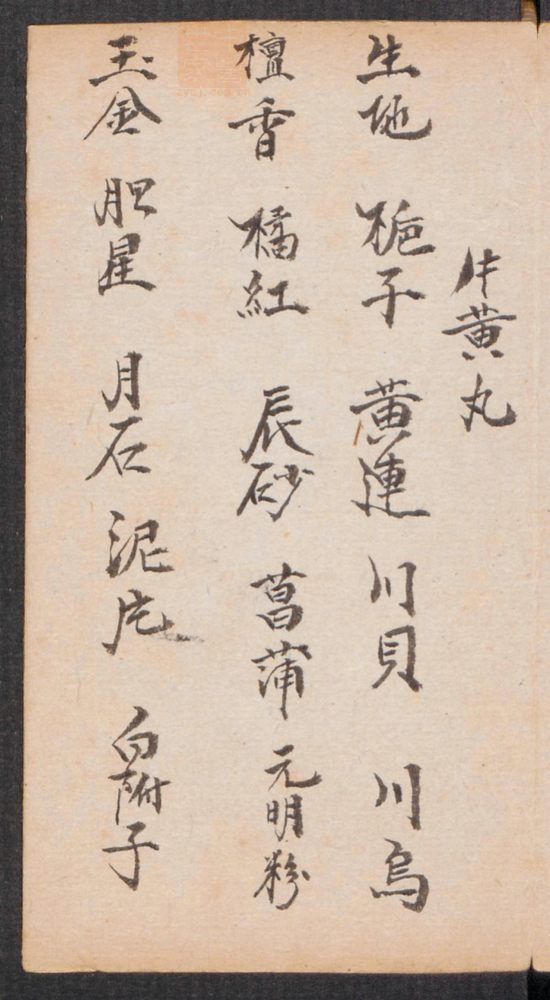 牛黄丸
生地 栀子 黄連 川貝 川烏
檀香 橘紅 辰砂 菖蒲 元明粉
玉金 胆星 月石 泥片 白附子